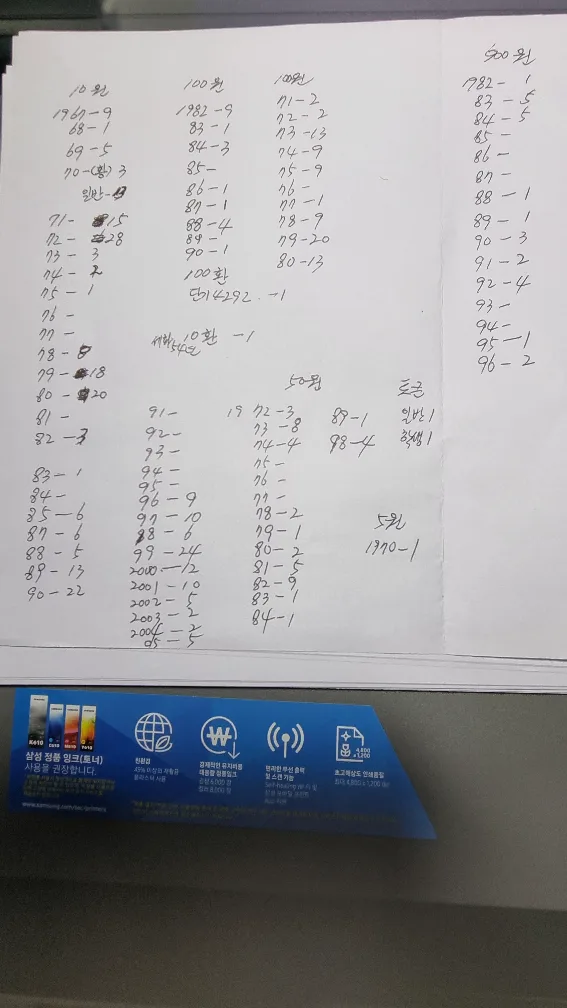 10원
1967-9
68-1
69-5
70-(황)3
일반-
71- 15
72- 28
73- 3
74- 2
75- 1
76-
77-
78-8
79- 18
80- 20
81-
82-3
83-1
84-
85-6
87-6
88-5
89-13
90-22
91-
92-
93-
94-
95-
96-9
97-10
98-6
99-24
2000-12
2001-10
2002-5
2003-2
2004-2
05-5
100원
1982-9
83-1
84-3
85-
86-1
87-1
88-4
89-
90-1
100환
단기4292. -1
10환 -1
100원
71-2
72-2
73-13
74-9
75-9
76-
77-1
78-9
79-20
80-13
50원
1972-3
73-8
74-4
75-
76-
77-
78-2
79-1
80-2
81-5
82-9
83-1
84-1
89-1
98-4
토큰
일반1
학생1
5원
1970-1
500원
1982-1
83-5
84-5
85-
86-
87-
88-1
89-1
90-3
91-2
92-4
93-
94-
95-1
96-2
K610
삼성 정품 잉크(토너)
사용을 권장합니다.
친환경
45% 이상의 재활용
플라스틱 사용
경제적인 유지비용
대용량 정품잉크
편리한 무선 출력
및 스캔 기능
4,800
x1,200
초고해상도 인쇄품질